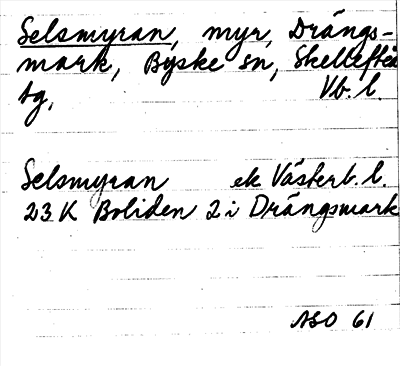 Selsmyran, myr, Drängs-
mark, Byske sn, Skellefteå
tg, Vb. l.
Selsmyran ek Västerb. l.
23 K Boliden 2 i Drängsmark
ASO 61